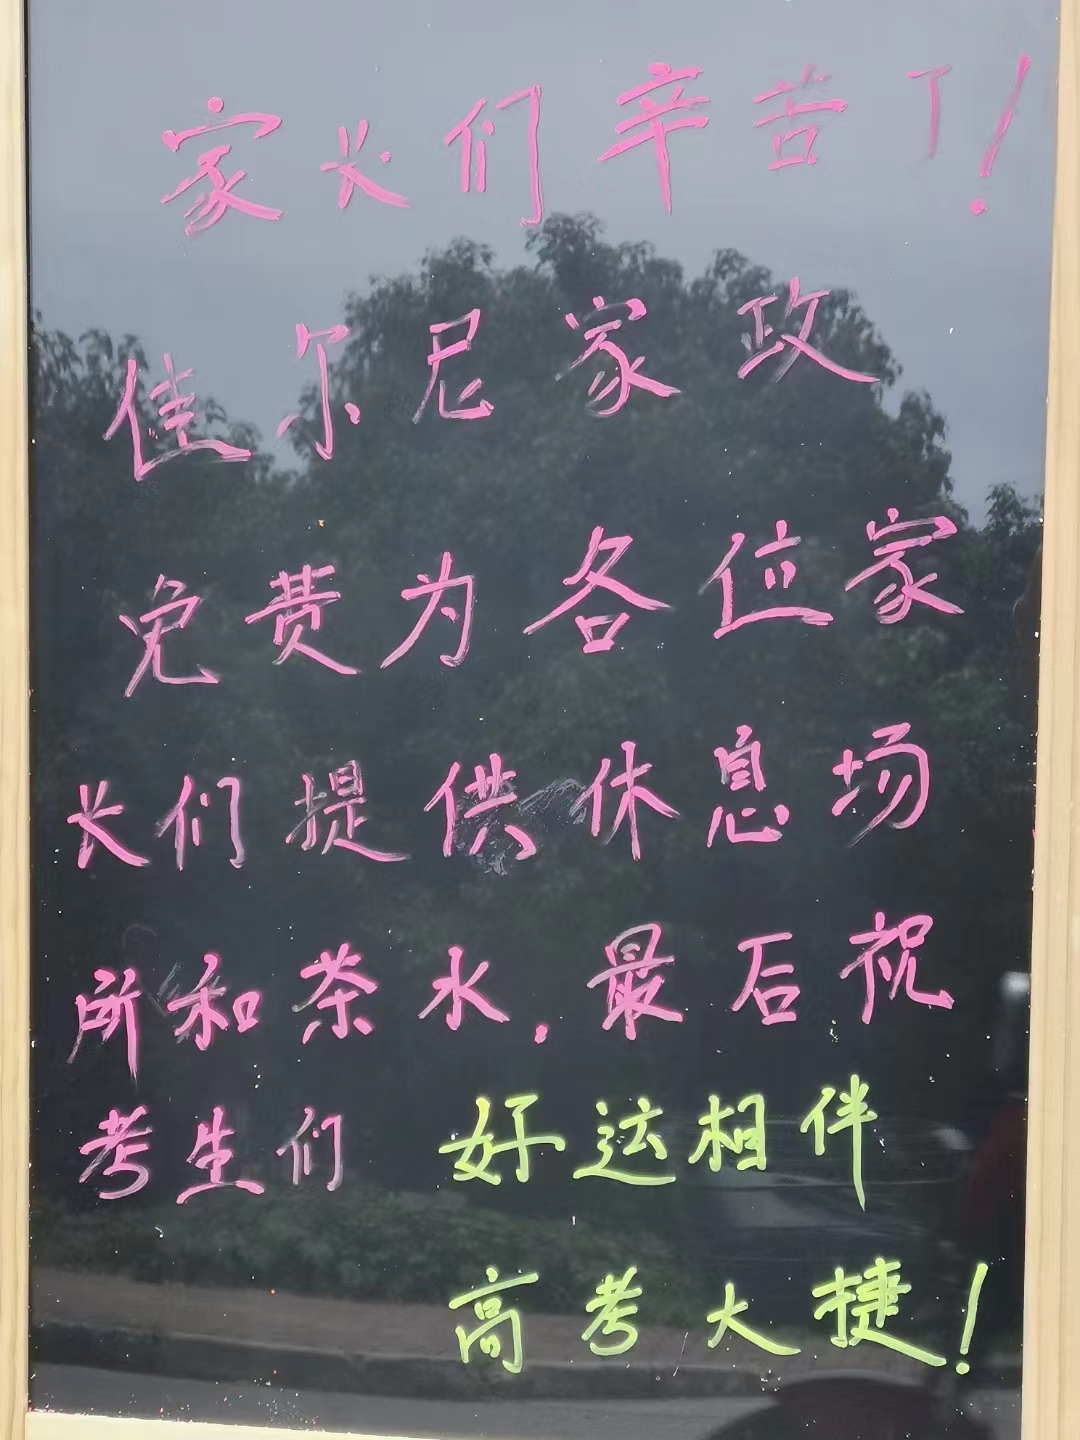 家长们辛苦了！
佳尔尼家政
免费为各位家
长们提供休息场
所和茶水.最后祝
考生们 好运相伴
高考大捷！